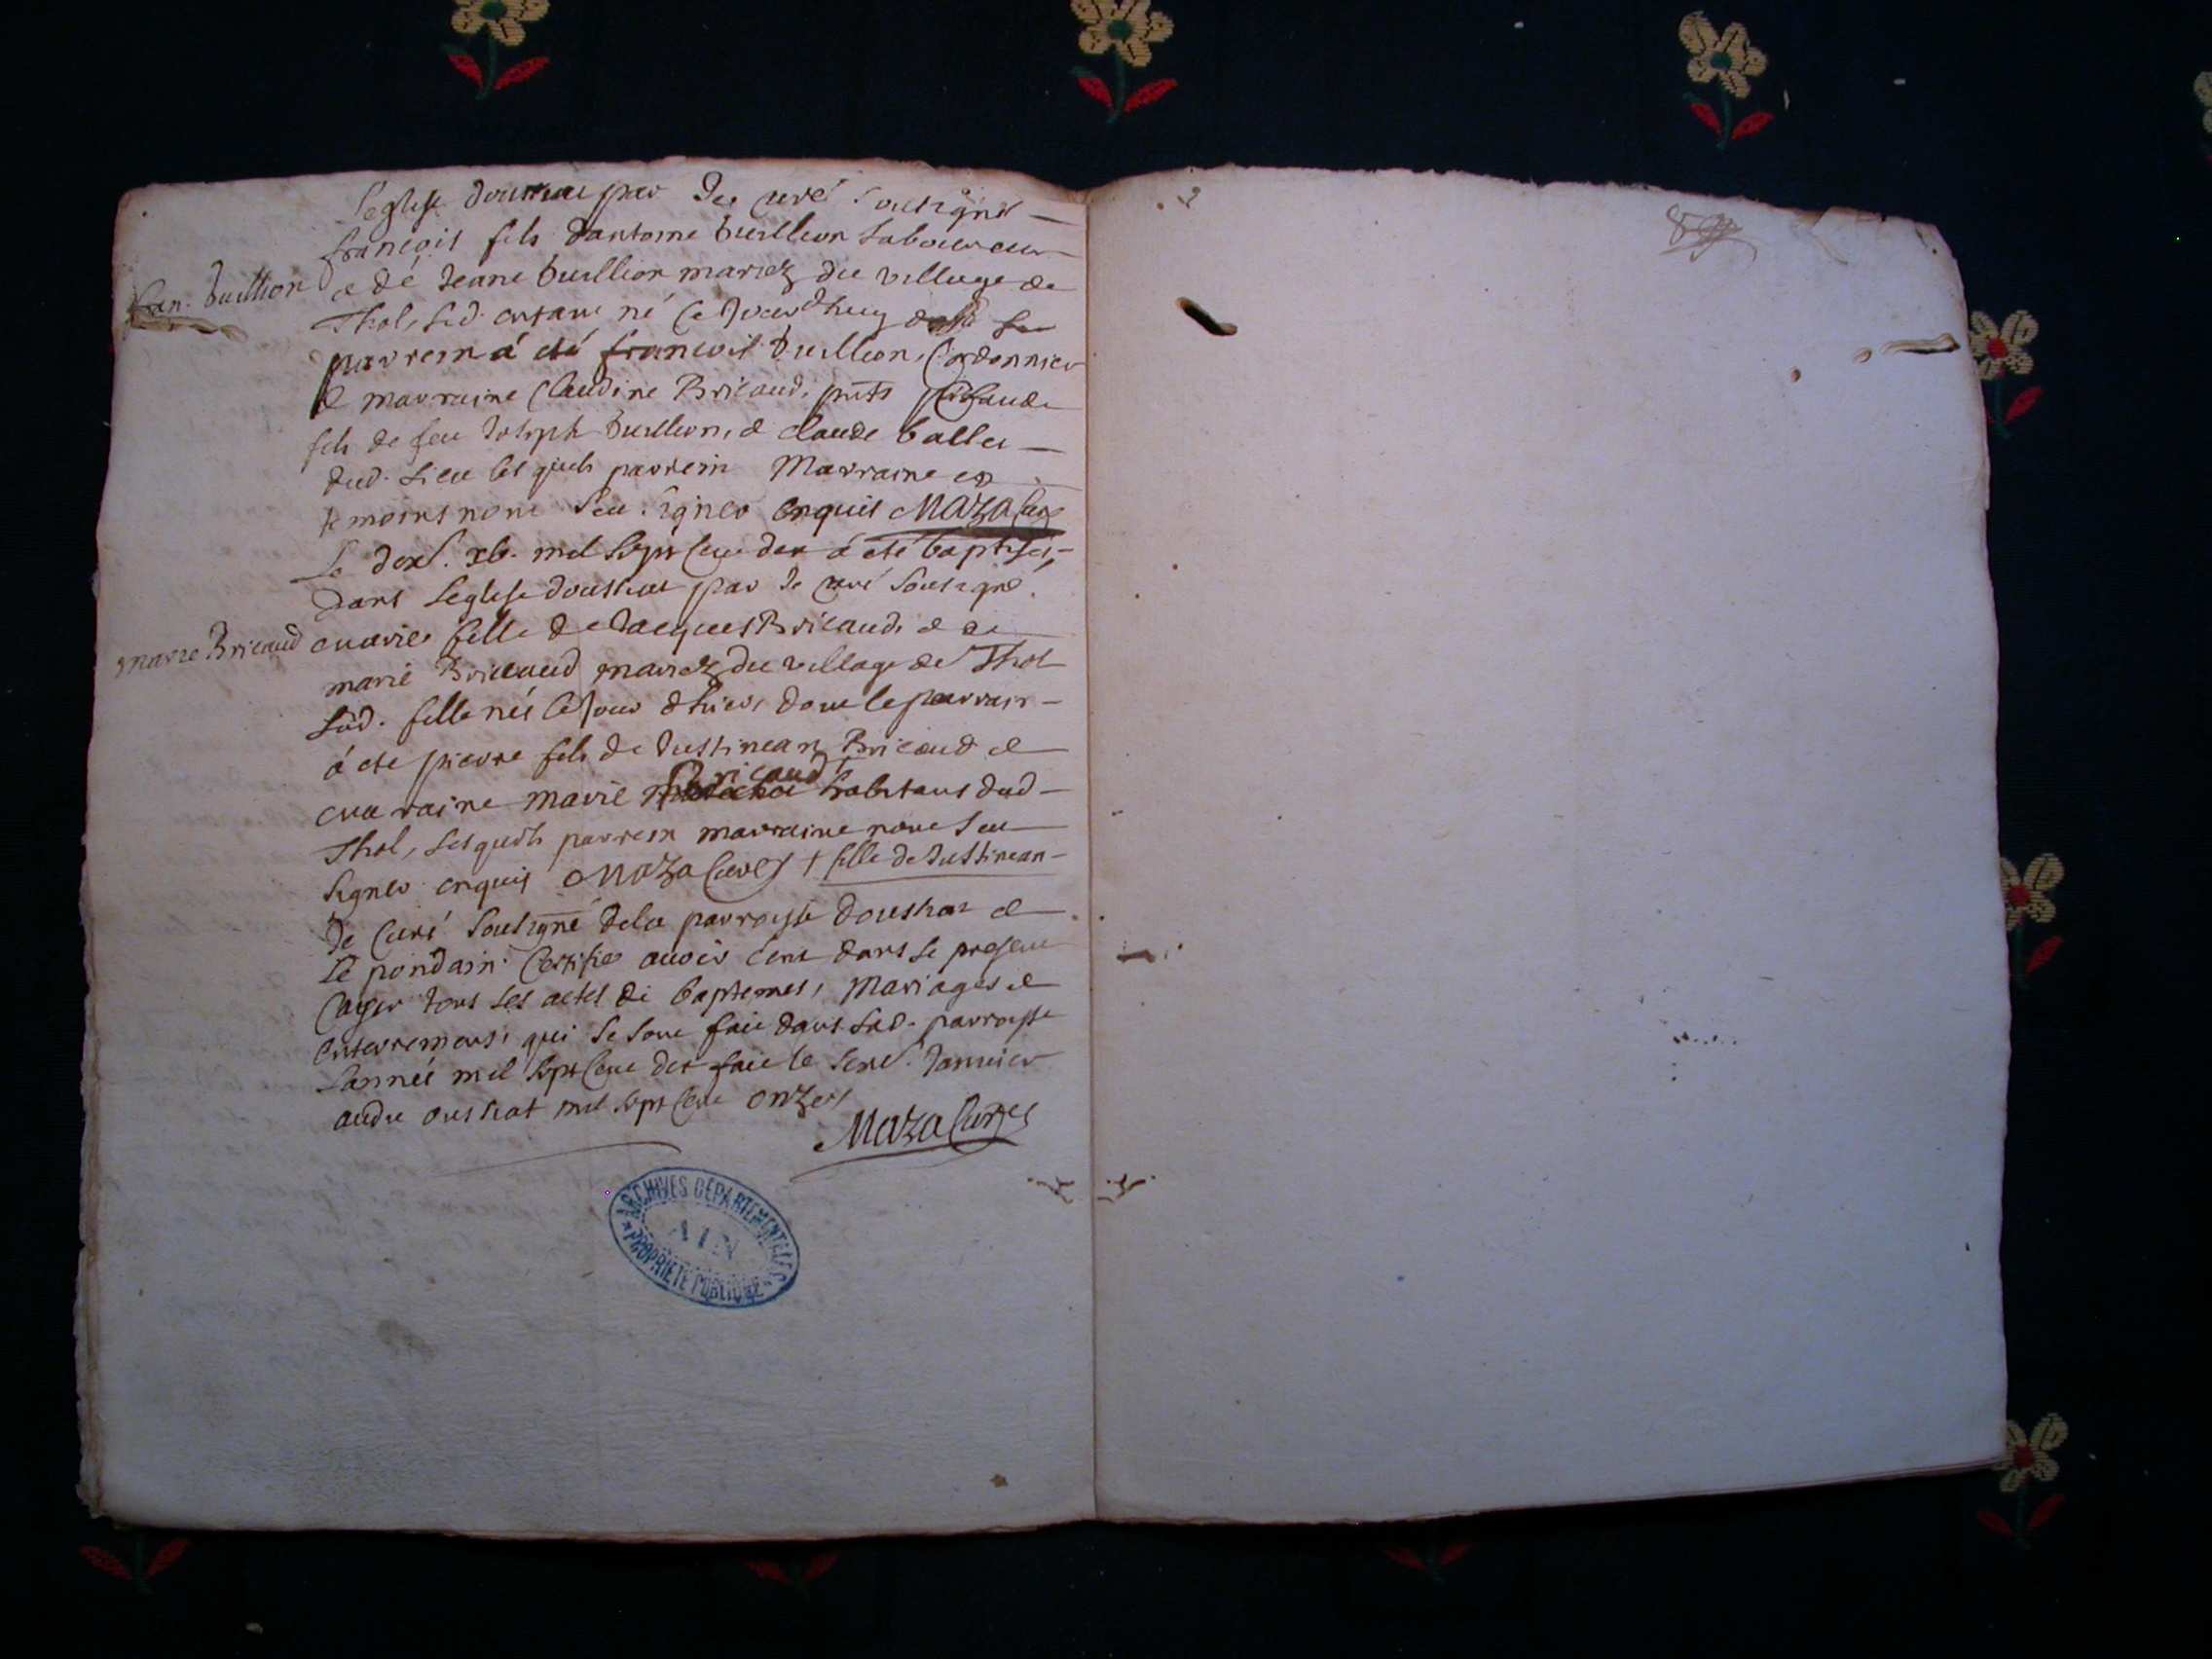 Leglise doustriat par Je curé soutsigné
francois fils dantoine Vuillion Laboureur
fran. Vuillion
& de Jeane Vuillion mariez du village de
Thol, led. enfant né ce Jourdhuy
parrein á eté francois Vuillion, Cordonnier
& marraine Claudine Bricaud, pnts
fils de feu Joseph Vuillion, & claude ballet
dud. Lieu lesquels parrein Marraine et
temoins nont seu signer enquis Maza Curé
Le dixe. xb. mil sept cent dix á eté baptisés
dans Leglise doustriat par Je curé soutsigné
marie Bricaud
marie fille de Jacques Bricaud, & de
marie Bricaud mariez du village de Thol
lad. fille née le Jour dhier, dont le parrain
á ete pierre fils de Justinean Bricaud &
maraine marie Bricaud † habitans dud
Thol, lesquels parrein marraine nont seu
signer enquis Maza Curé † fille de Justinean
Je Curé soutsigné dela parroisse doustriat &
le pondain certifie avoir ecrit dans le present
Cayer tous les actes de baptemes, Mariages &
enterremens, qui se sont fait dans lad. parroisse
Lannée mil sept cent dix fait le Janvier
audit oustriat mil sept cent onze
Maza Curé
ARCHIVES DEPARTEMENTALES
AIN
PROPRIETE PUBLIQUE